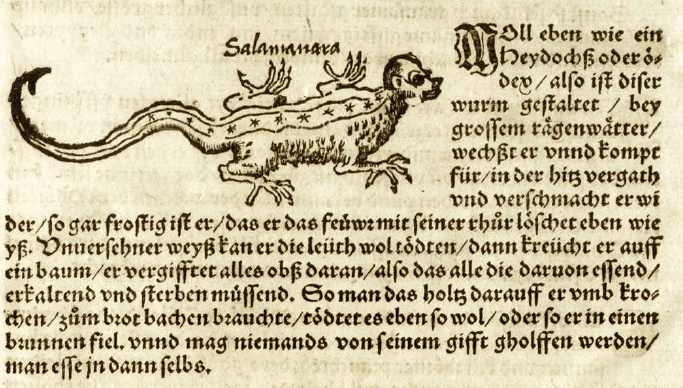 Salamanara
WOll eben wie ein
Heydochß oder ö⸗
dex / also ist diser
wurm gestaltet / bey
grossem rägenwätter /
wechßt er vnnd kompt
für / in der hitz vergath
vnd verschmacht er wi
der / so gar frostig ist er / das er das feüwr mit seiner rhůr löschet eben wie
yß. Vnuersehner weyß kan er die leüth wol tödten / dann kreücht er auff
ein baum / er vergifftet alles obß daran / also das alle die daruon essend /
erkaltend vnd sterben müssend. So man das holtz darauff er vmb kro⸗
chen / zům brot bachen brauchte / tödtet es eben so wol / oder so er in einen
brunnen fiel. vnnd mag niemands von seinem gifft gholffen werden /
man esse jn dann selbs.